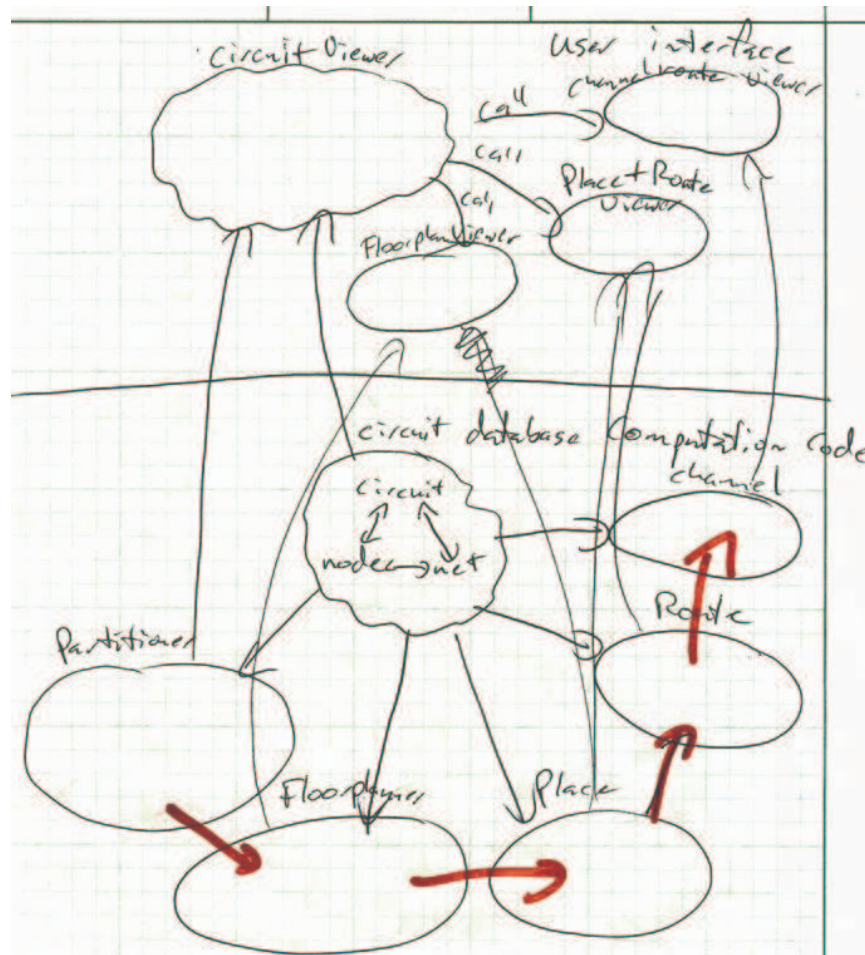 Circuit Viewer
User interface
channel route viewer
call
call
Place + Route
Viewer
call
Floorplan Viewer
circuit database
Computation Code
channel
circuit
node
net
Route
Partitioner
Floorplanner
Place